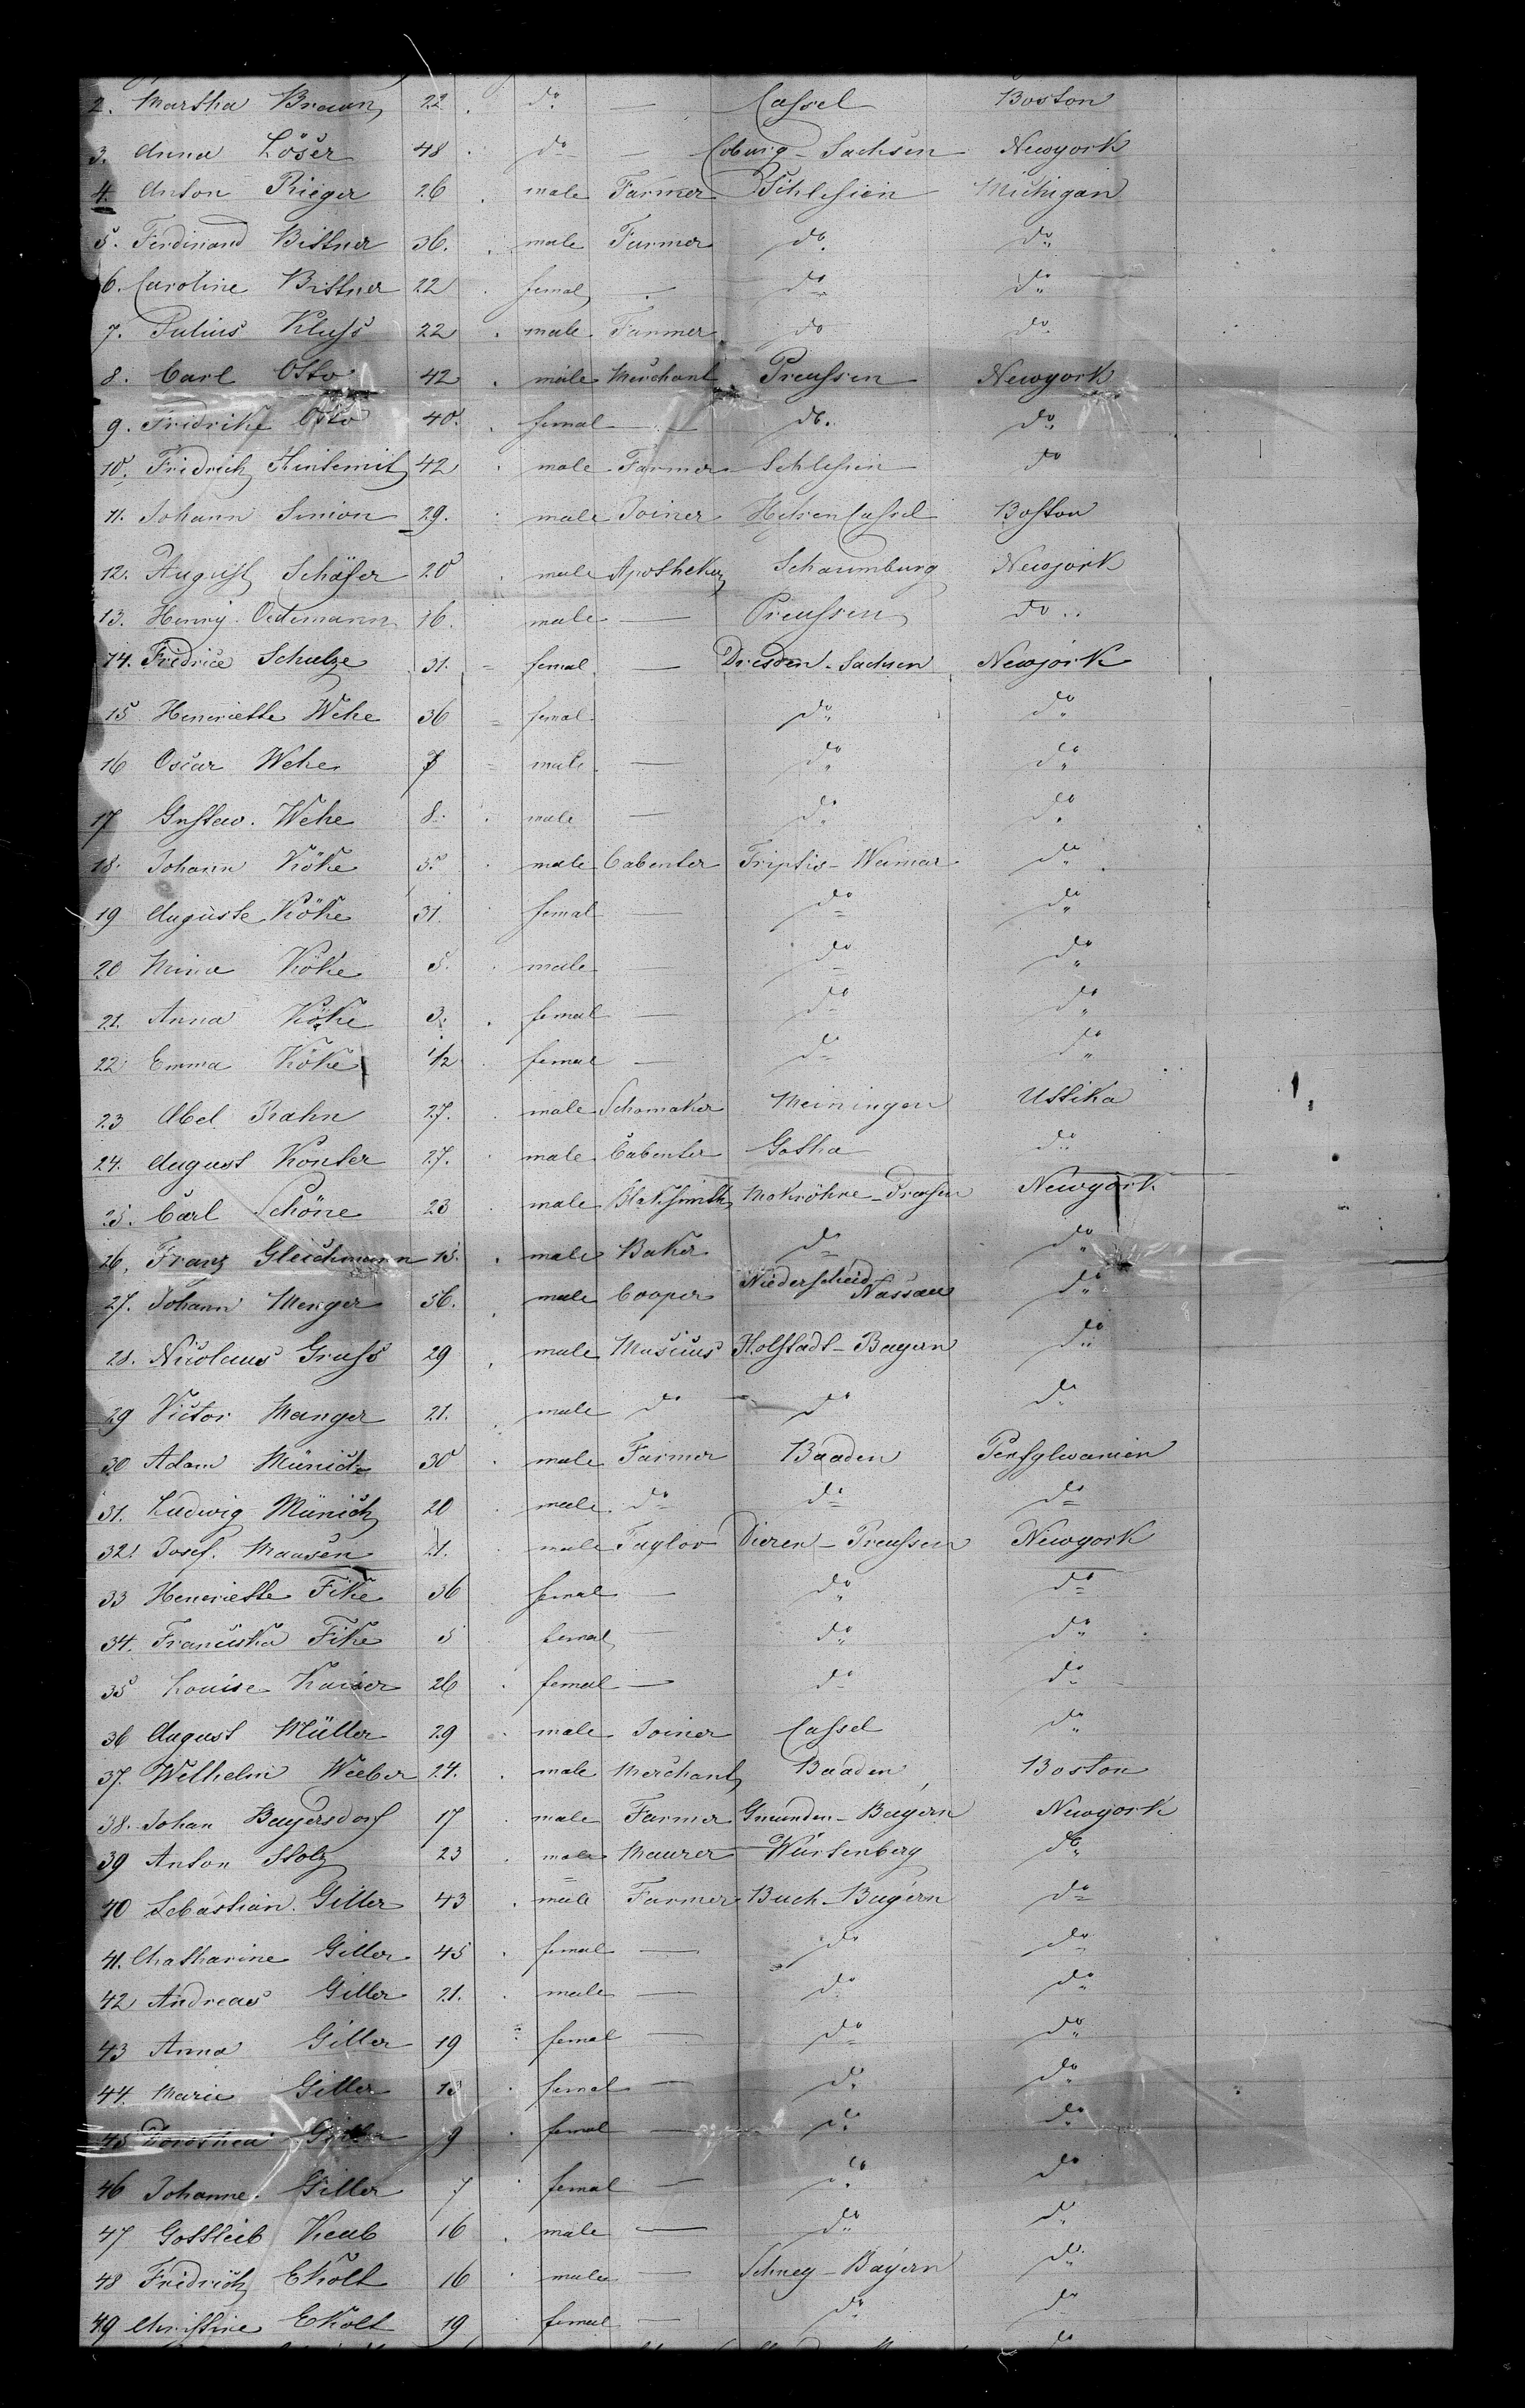 2. Martha Braun 22 do — Cassel Boston
3. Anna Löser 48 do — Coburg-Sachsen Newyork
4. Anton Rieger 26 male Farmer Schlesien Michigan
5. Ferdinand Bittner 36. male Farmer do. do
6. Caroline Bittner 22 femal — do do
7. Julius Kluss 22 male Farmer do do
8. Carl Otto 42 male Merchant Preussen Newyork
9. Fridrike Otto 40. femal — do. do
10. Fridrich 42 male Farmer Schlesien do
11. Johann Simon 29. male Joiner Hessen Cassel Boston
12. August Schäfer 20 male Apotheker Schaumburg Newjork
13. Henry Oetemann 16. male — Preussen do
14. Fridrice Schulze 31. femal — Dresden-Sachsen Newjork
15 Henriette Wehe 36 femal do do
16 Oscar Wehe male — do do
17 Gustav. Wehe 8. male — do do
18. Johann Köke male Cabenter Triptis-Weimar do
19 Auguste Köke 31. femal — do do
20 Mina Köke 5. male — do do
21. Anna Köke 3. femal — do do
22 Emma Köke 1/2 femal — do do
23 Abel Rahn 27. male Schomaker Meiningen Uttika
24. August Konter 27. male Cabenter Gotha do
25. Carl Schöne 23 male Blaksmith Mokröhne-Preussen Newyork
26. Franz Gleichmann 15. male Baker do do
27. Johann Menger 36. male Cooper Niederscheid Nassau do
28. Nicolaus Gruss 29 male Musicus Holstadt-Bayern do
29 Victor Manger 21. male do do do
30 Adam Münich 30 male Farmer Baaden Pensylwanien
31. Ludwig Münich 20 male do do do
32. Josef. Mausen 21. male Taylor Dieren-Preussen Newyork
33 Henriette Fike 36 femal — do do
34. Franciska Fike 5 femal — do do
35 Louise Kaiser 26 femal — do do
36 August Müller 29 male Joiner Cassel do
37. Welhelm Weeber 24. male Merchant Baaden Boston
38. Johan Bayersdorf 17 male Farmer Gmunden-Bayern Newyork
39 Anton Stolz 23 male Maurer Würtenberg do
40 Sebastian Giller 43 male Farmer Buch-Bayern do
41. Chatharine Giller 45 femal — do do
42 Andreas Giller 21. male — do do
43 Anna Giller 19 femal — do do
44. Marie Giller femal — do do
45 Dorothea Giller 9 femal — do do
46 Johanne Giller 7 femal — do do
47 Gottlieb Keub 16 male — do do
48 Fridrich Ekolt 16 male — Schney-Bayern do
49 Christine Ekolt 19 femal — do do